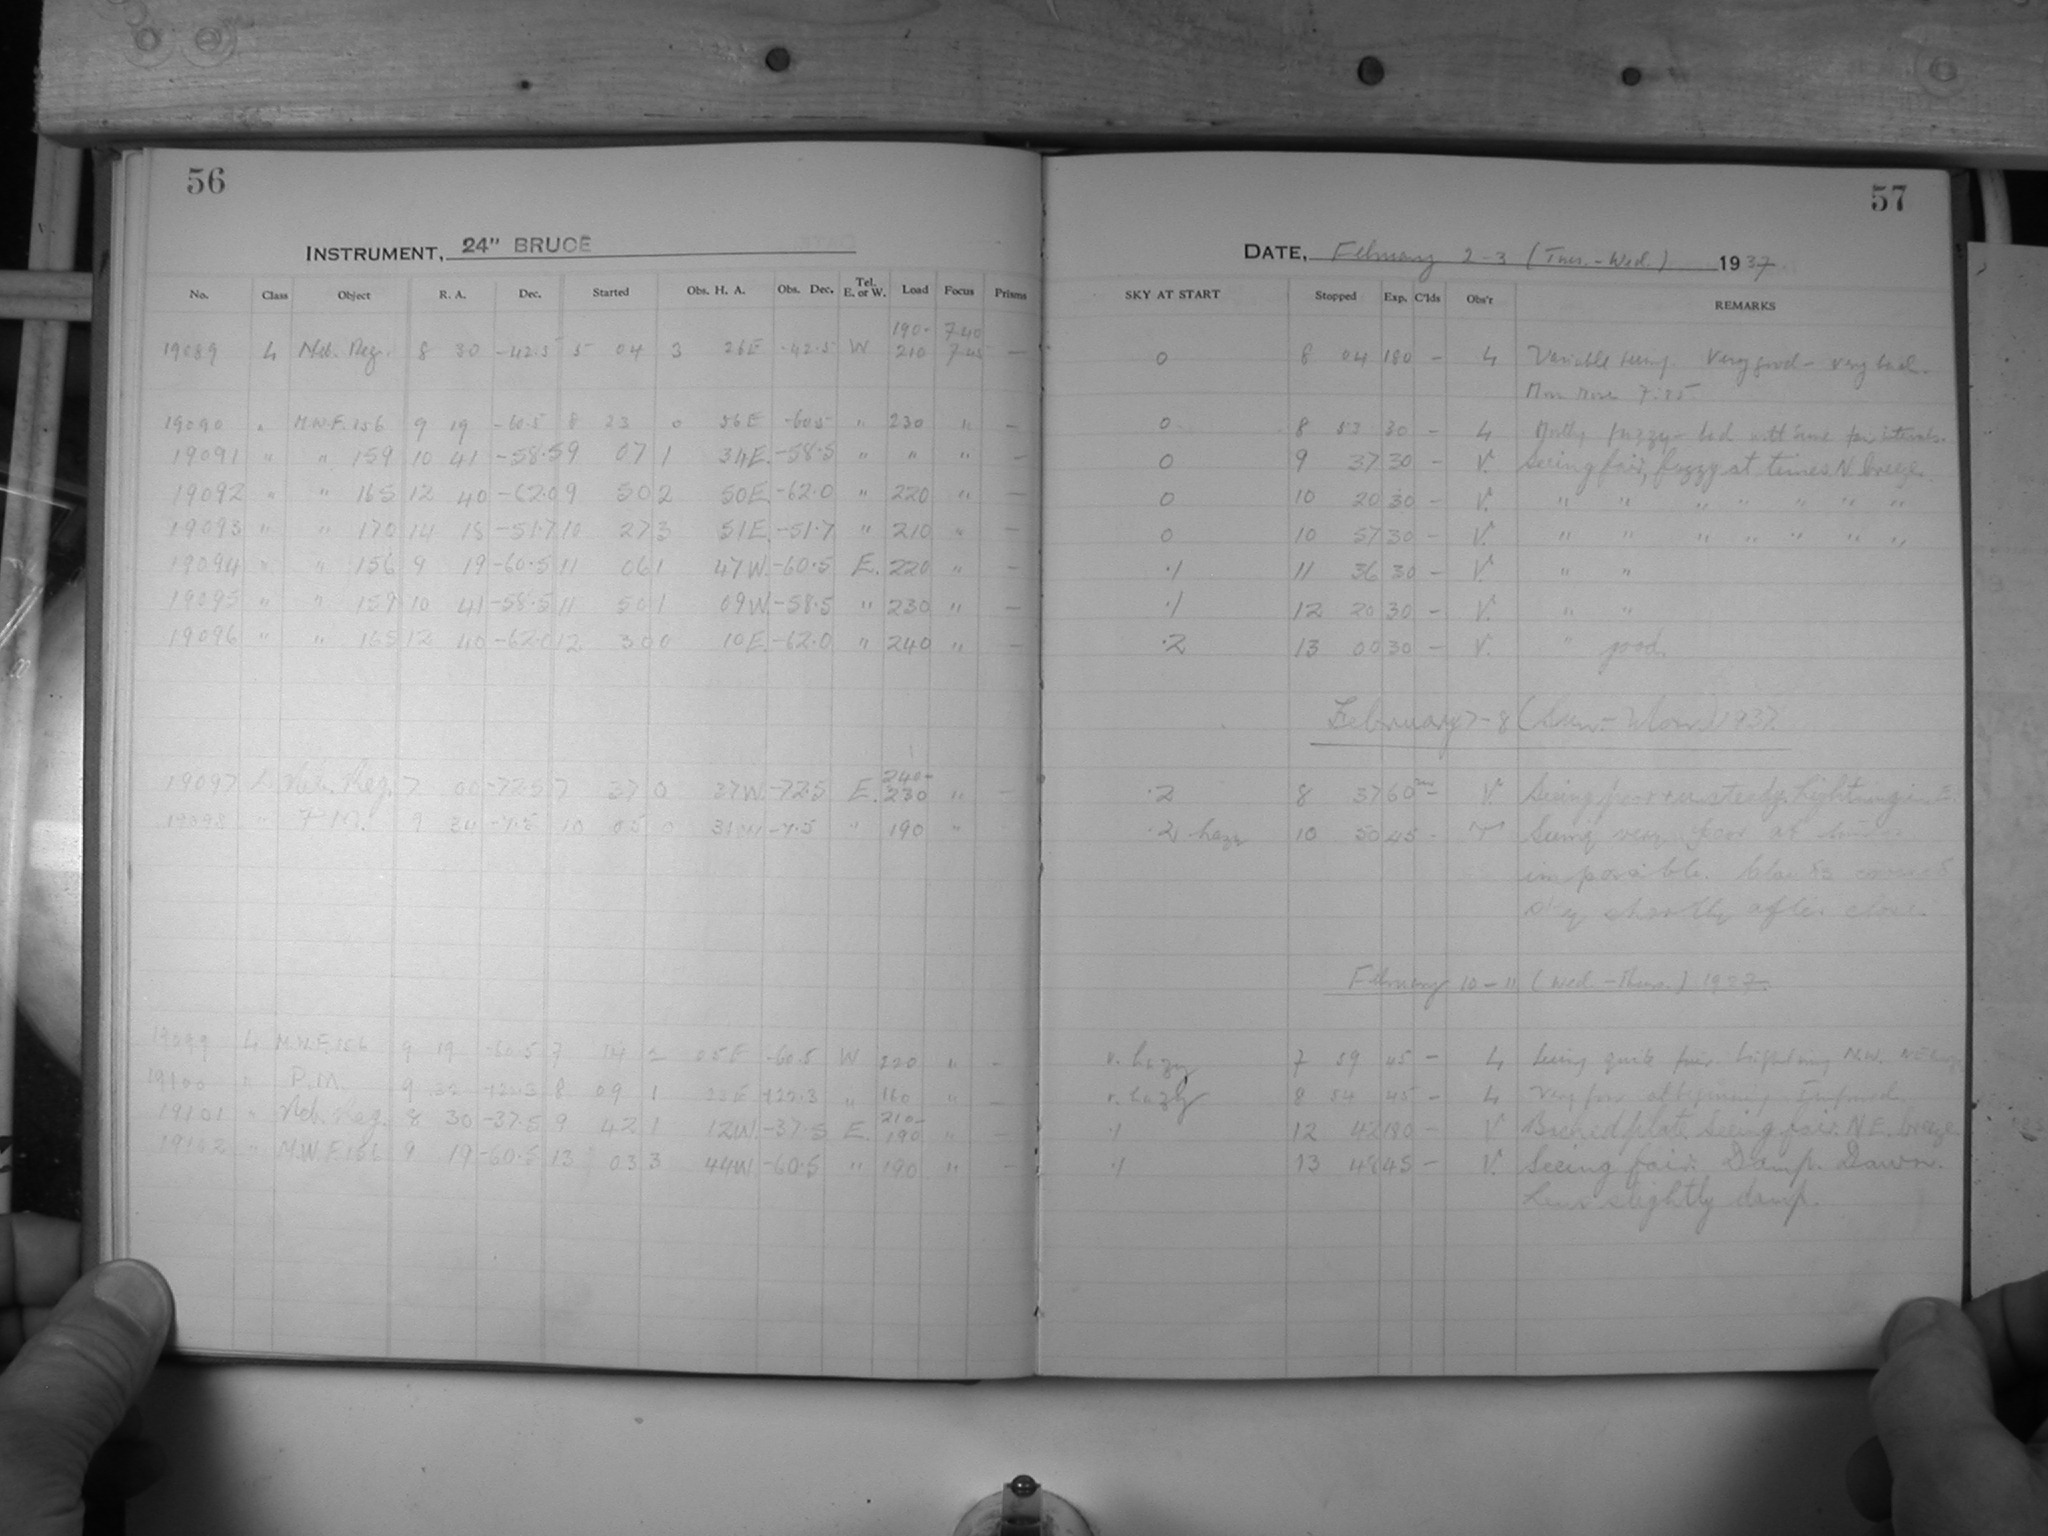 56
INSTRUMENT, 24" BRUCE
No. Class Object R. A. Dec. Started Obs. H. A. Obs. Dec. Tel. E. or W. Load Focus Prisms
190- 7.40
19089 L Neb. Reg. 8 30 -42.5 5 04 3 26E -42.5 W 210 7.45 —
19090 " M.W.F. 156 9 19 -60.5 8 23 0 56E -60.5 " 230 " —
19091 " " 159 10 41 -58.5 9 07 1 34E -58.5 " " " —
19092 " " 165 12 40 -62.0 9 50 2 50E -62.0 " 220 " —
19093 " " 170 14 18 -51.7 10 27 3 51E -51.7 " 210 " —
19094 " " 156 9 19 -60.5 11 06 1 47W -60.5 E. 220 " —
19095 " " 159 10 41 -58.5 11 50 1 09W -58.5 " 230 " —
19096 " " 165 12 40 -62.0 12 30 0 10E -62.0 " 240 " —
240-
19097 L Neb. Reg. 7 00 -72.5 7 37 0 37W -72.5 E. 230 " —
19098 " 9 10 05 0 -7.5 " 190 "
19099 L M.W.F. 156 9 19 -60.5 7 14 2 05E -60.5 W 220 " —
19100 " P.M. 9 8 09 1 +22.3 " 160 " —
210-
19101 " Neb. Reg. 8 30 -37.5 9 42 1 12W -37.5 E. 190 " —
19102 " M.W.F. 156 9 19 -60.5 13 03 3 44W -60.5 " 190 " —
57
DATE, February 2-3 (Tues.-Wed.) 1937
SKY AT START Stopped Exp. C'lds Obs'r REMARKS
0 8 04 180 — L Variable seeing. Very good - very bad.
Moon rose
0 8 53 30 — L Mostly fuzzy - bad with some fair intervals.
0 9 37 30 — V. Seeing fair, fuzzy at times N. breeze
0 10 20 30 — V. " " " " " " "
0 10 57 30 — V. " " " " " " "
.1 11 36 30 — V. " "
.1 12 20 30 — V. " "
.2 13 00 30 — V. " good.
February 7-8 (Sun.-Mon.) 1937
.2 8 37 60 — V. Seeing poor unsteady. Lightning in E.
.2 hazy 10 50 45 — T Seeing very poor at times
impossible. Clouds covered
sky shortly after close.
February 10-11 (Wed.-Thurs.) 1937
v. hazy 7 59 45 — L Seeing quite fair. Lightning N.W.
v. hazy 8 54 45 — L Very poor at beginning. Improved.
.1 12 42 180 — V. plate. Seeing fair. N.E. breeze
.1 13 48 45 — V. Seeing fair. Damp. Dawn.
Lens slightly damp.